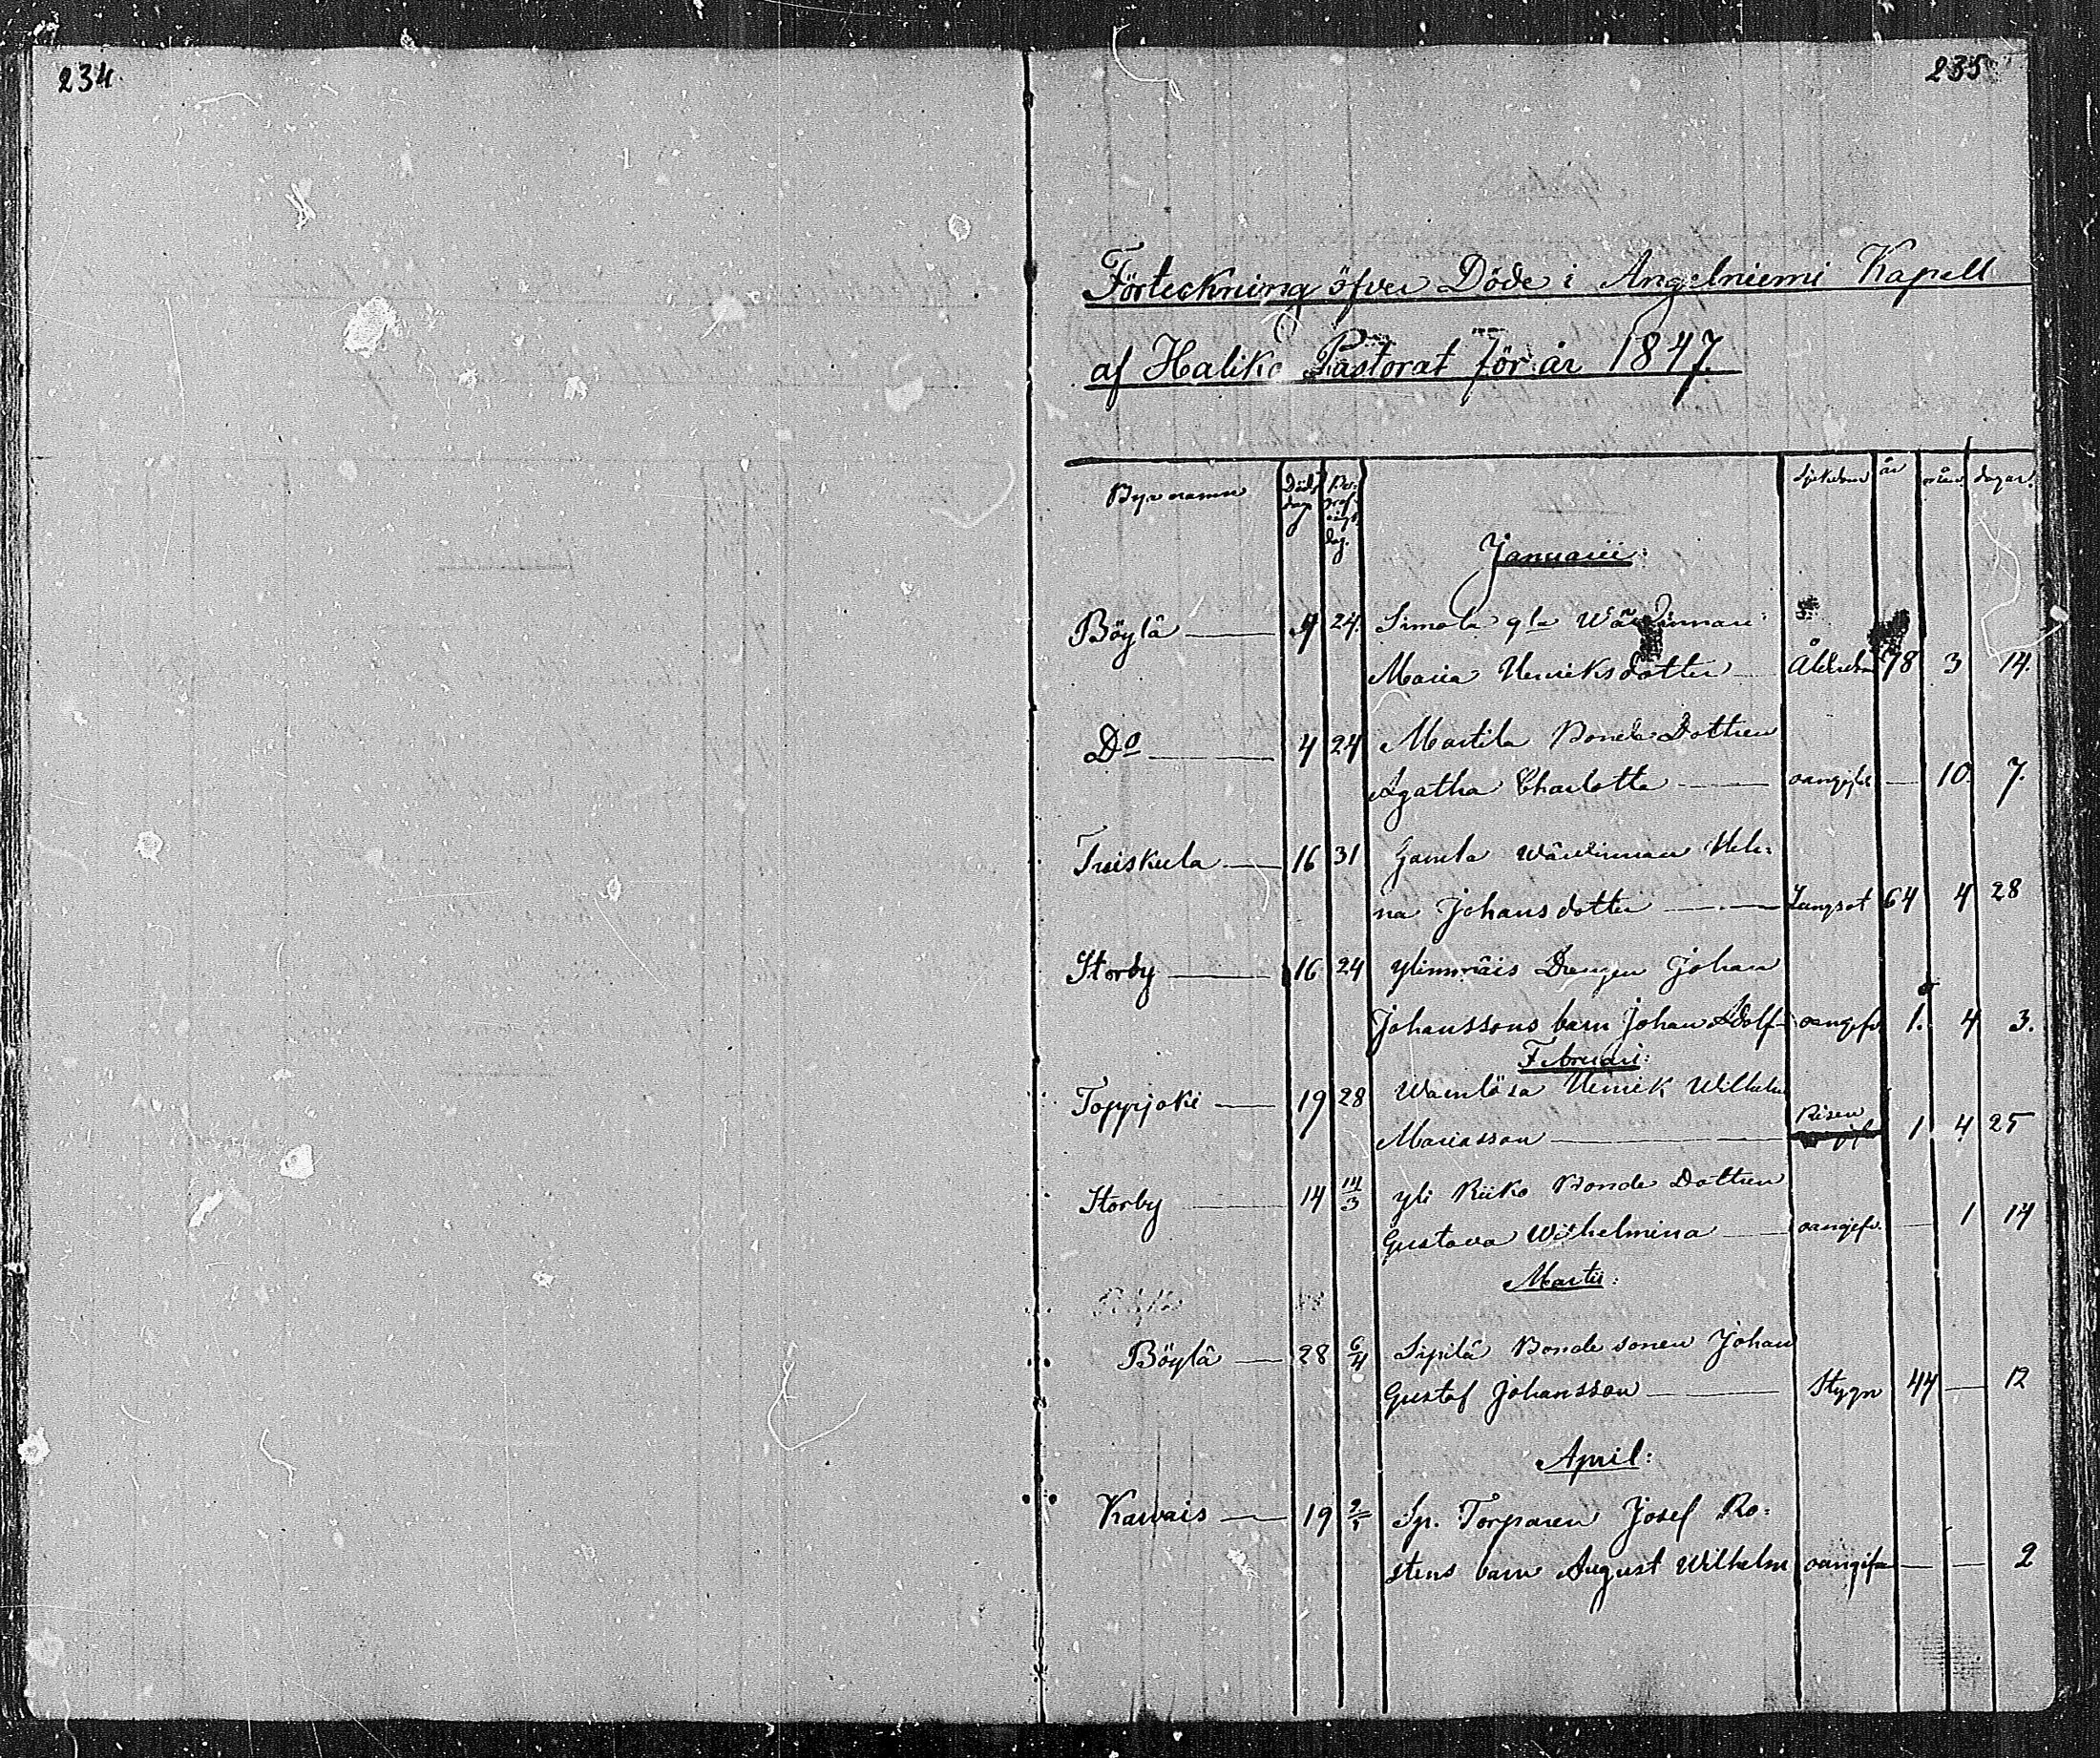 234.
235
Förteckning öfver Döde i Angelniemi Kapell
af Haliko Pastorat för år 1847.
Byanamn Döds dag Be: graf: nings dag. Sjukdom år mån. dagar.
Januarii:
Böylä 4 24. Simola gla Wärdinnan
Maria Henriksdotter Ålderdom 78 3 14.
Do 4 24 Martila Bonde Dottren
Agatha Charlotta oangifv. 10 7.
Truiskula 16 31 Gamla Wärdinnan Hele:
na Johansdotter Lungsot 64 4 28
Storby 16 24 Ylimräis Drengen Johan
Johanssons barn Johan Adolf oangifv 1. 4 3.
Februari:
Toppjoki 19 28 Wärnlösa Henrik Wilhelm
Mariasson Risen 1 4 25
Storby 14 14/3 Yli Riiko Bonde Dottren
Gustava Wilhelmina oangifv. 1 14
Martii:
Böylä 28 6/4 Sipilä Bonde sonen Johan
Gustaf Johansson Stygn 44 12
April:
Karvais 19 2/5 Sp. Torparen Josef Ro:
stens barn August Wilhelm oangifv 2